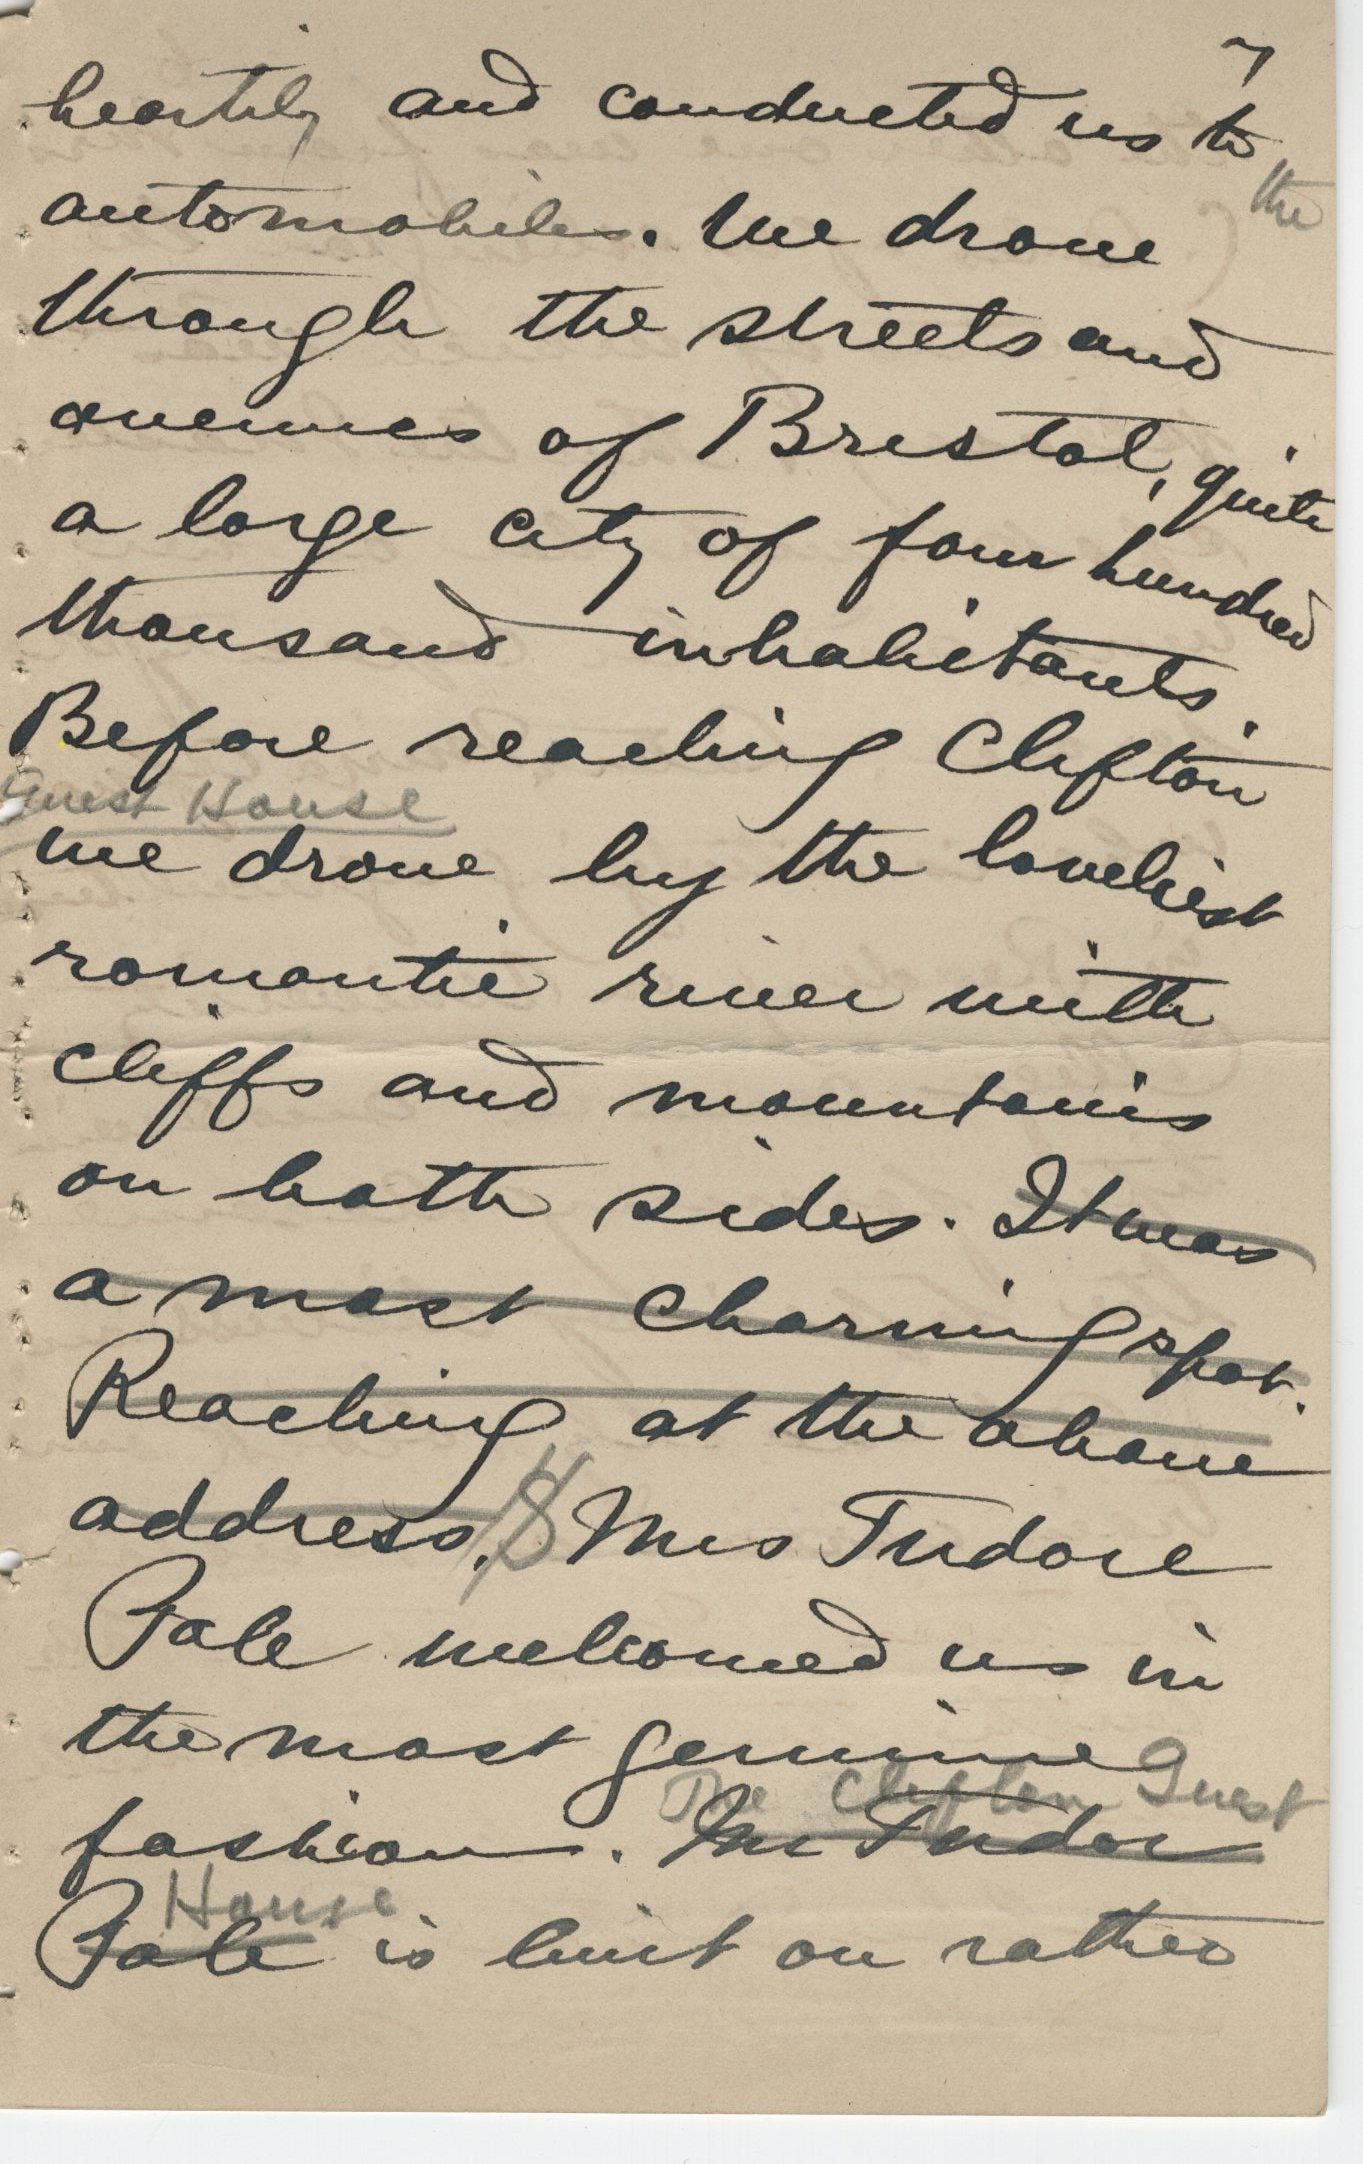 7
heartily and conducted us to
the
automobiles. We drove
through the streets and
avenues of Bristol, quite
a large city of four hundred
thousand inhabitants.
Before reaching Clifton
Guest House
we drove by the loveliest
romantic river with
cliffs and mountains
on both sides. It was
a most charming spot.
Reaching at the above
address, Mrs Tudore
Pole welcomed us in
the most genuine
The Clifton Guest
fashion. Mr Tudor
House
Pole is built on rather